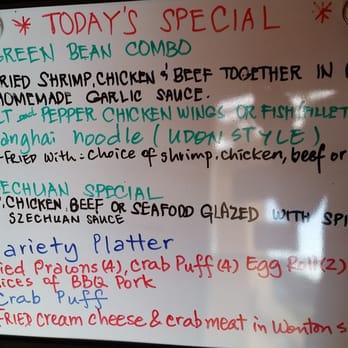 * TODAY'S SPECIAL *
GREEN BEAN COMBO
FRIED SHRIMP, CHICKEN & BEEF TOGETHER IN
HOMEMADE GARLIC SAUCE.
LT and PEPPER CHICKEN WINGS OR FISH FILLET
anghai noodle (UDON STYLE)
-FRIED with: choice of shrimp, chicken, beef or
ECHUAN SPECIAL
P, CHICKEN, BEEF OR SEAFOOD GLAZED WITH SPI
SZECHUAN SAUCE
Variety Platter
ied Prawns (4), Crab Puff (4) Egg Roll (2)
ices of BBQ Pork
Crab Puff
FRIED Cream cheese & crab meat in Wonton s